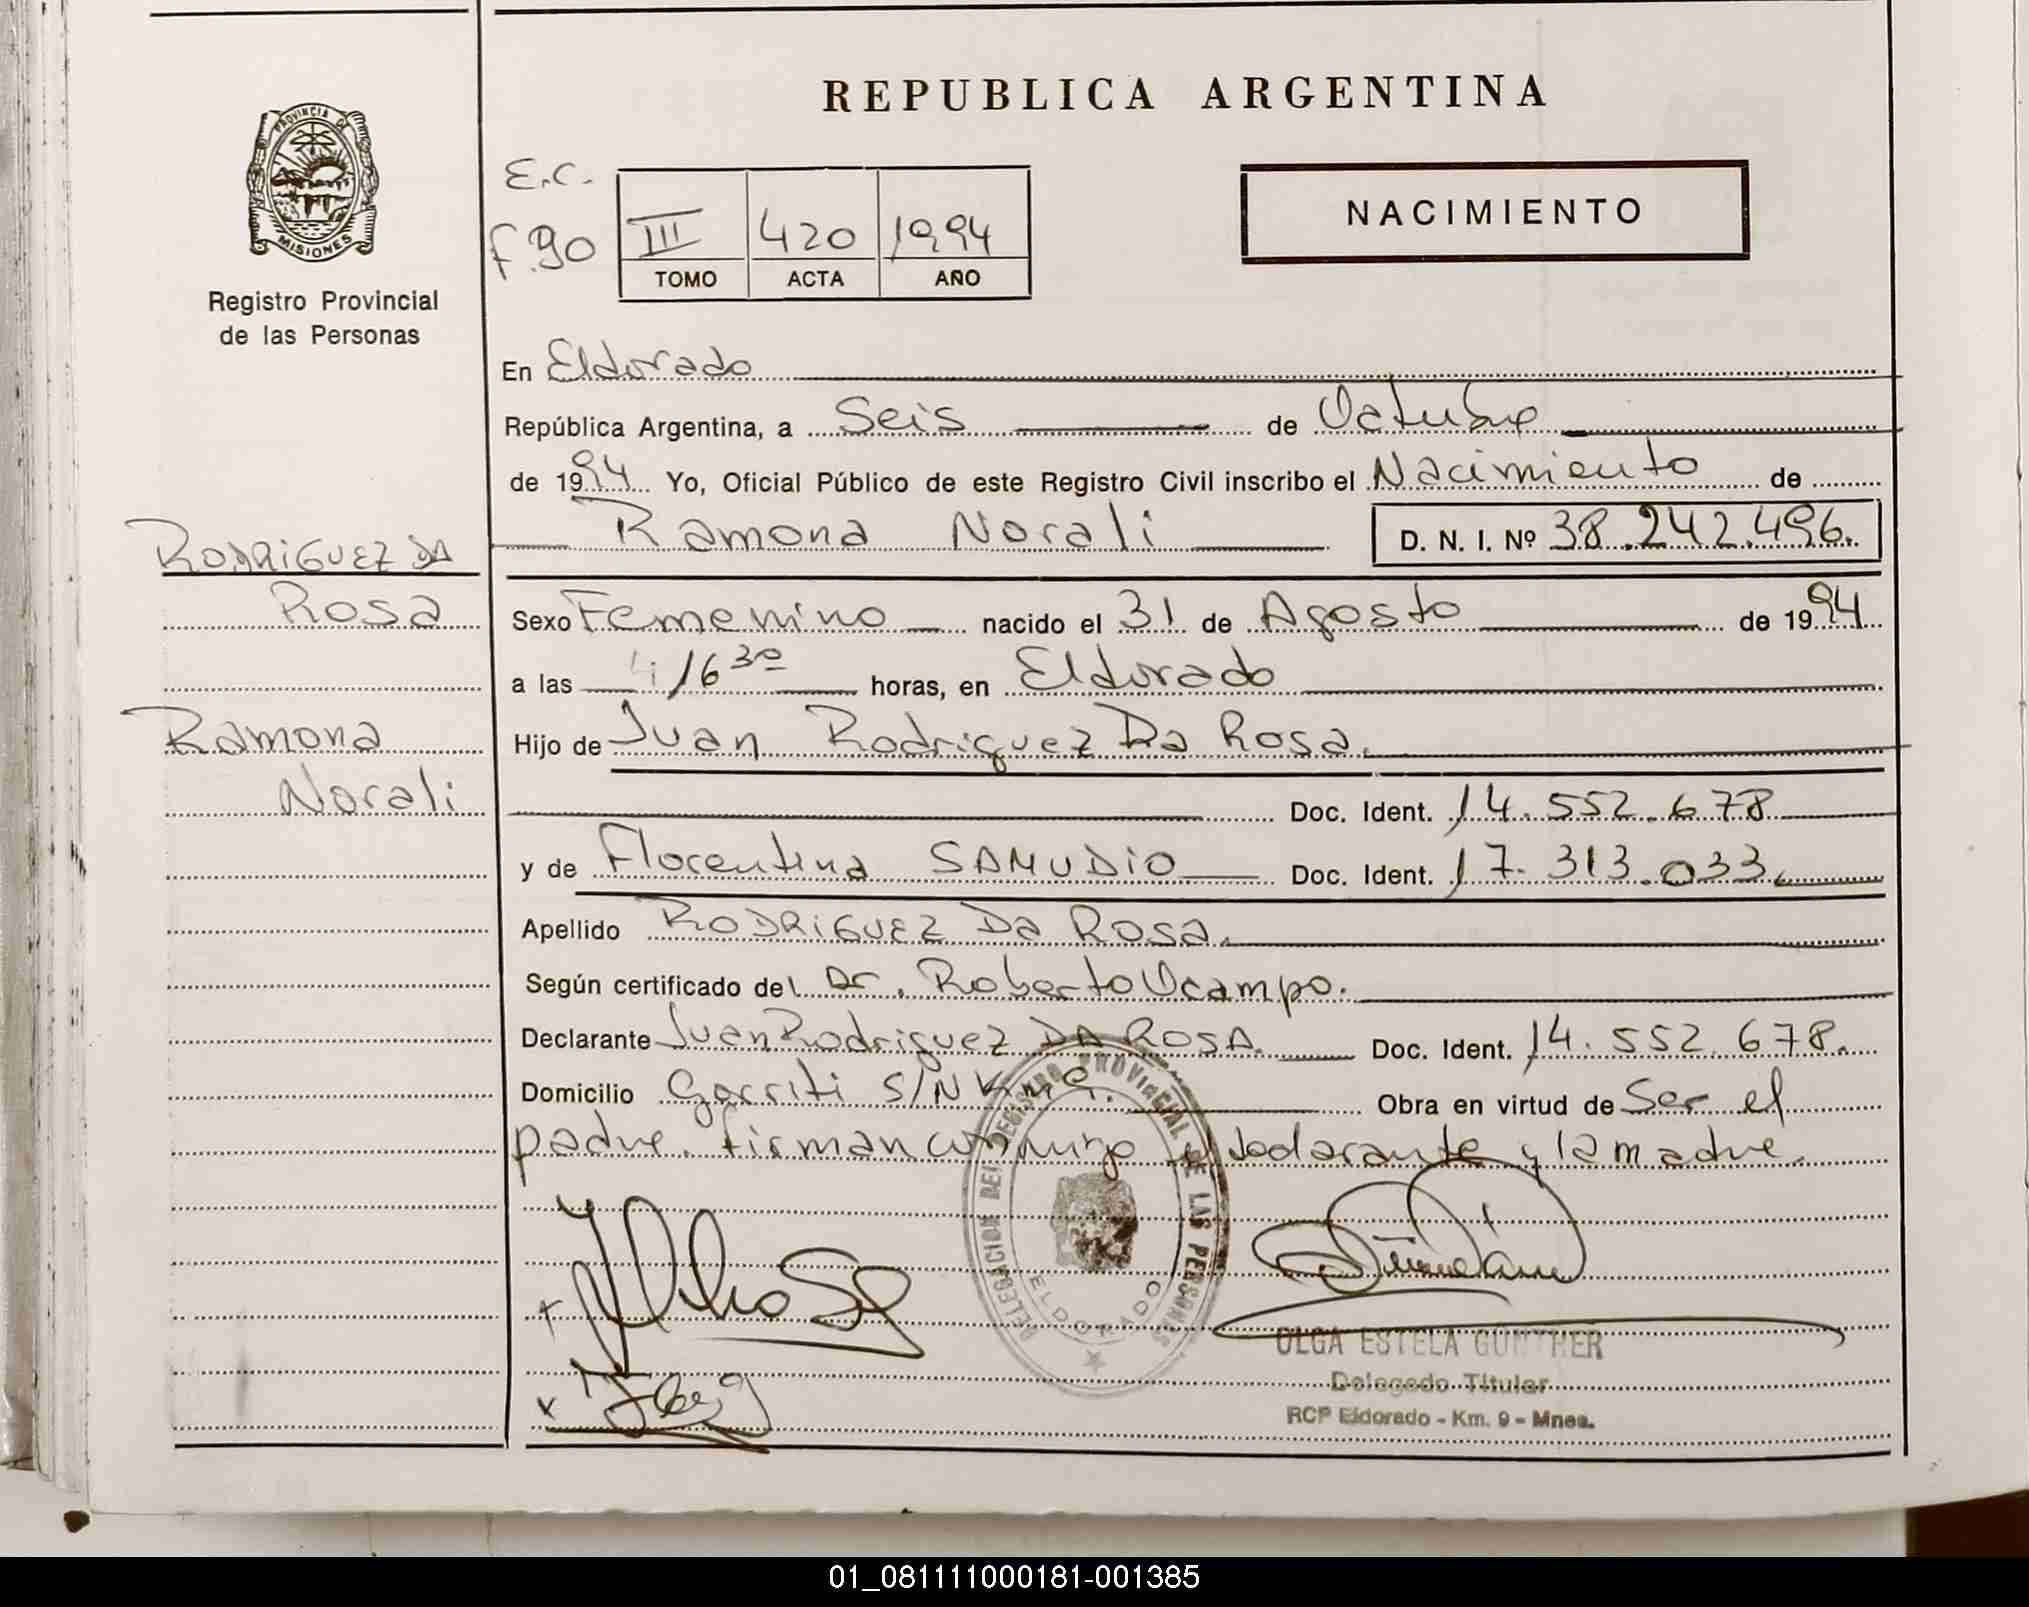 REPUBLICA ARGENTINA
PROVINCIA DE
MISIONES
Registro Provincial
de las Personas
E.C.
F.90
III 420 1994
TOMO ACTA AÑO
NACIMIENTO
En Eldorado
República Argentina, a Seis de Octubre
de 1994 Yo, Oficial Público de este Registro Civil inscribo el Nacimiento de
Ramona Norali D. N. I. Nº 38.242.496.
RODRIGUEZ DA
Rosa
Ramona
Norali
Sexo Femenino nacido el 31 de Agosto de 1994
a las 16 30 horas, en Eldorado
Hijo de Juan Rodriguez Da Rosa.
Doc. Ident. 14.552.678
y de Florentina SAMUDIO Doc. Ident. 17.313.033.
Apellido RODRIGUEZ Da Rosa.
Según certificado del Dr. Roberto Ocampo.
Declarante Juan Rodriguez DA ROSA. Doc. Ident. 14.552.678.
Domicilio Gorriti S/N Km 9. Obra en virtud de Ser el
padre. firman conmigo el declarante y la madre.
DELEGACION DEL REGISTRO PROVINCIAL DE LAS PERSONAS
ELDORADO
OLGA ESTELA GUNTHER
Delegado Titular
RCP Eldorado - Km. 9 - Mnes.
01_081111000181-001385